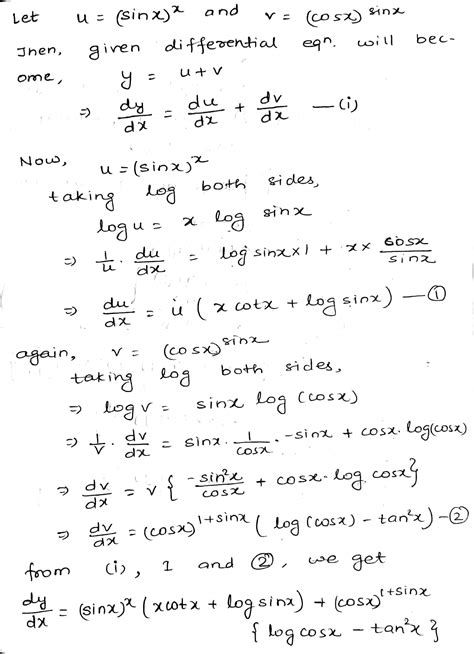 Let u = (sinx)^x and v = (cosx)^sinx
Then, given differential eqn. will bec-
ome, y = u+v
⇒ dy/dx = du/dx + dv/dx —(i)
Now, u = (sinx)^x
taking log both sides,
log u = x log sinx
⇒ 1/u · du/dx = log sinx×1 + x× cosx/sinx
⇒ du/dx = u ( x cotx + log sinx) —①
again, v = (cosx)^sinx
taking log both sides,
⇒ log v = sinx log (cosx)
⇒ 1/v · dv/dx = sinx · 1/cosx · -sinx + cosx · log(cosx)
⇒ dv/dx = v { -sin²x/cosx + cosx · log cosx}
⇒ dv/dx = (cosx)^1+sinx ( log (cosx) - tan²x) —②
from (i), 1 and ②, we get
dy/dx = (sinx)^x (xcotx + log sinx) + (cosx)^1+sinx
{ log cosx - tan²x }